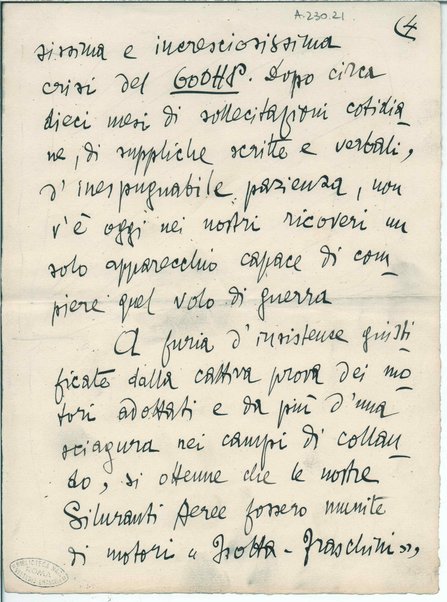 A.230.21
4
sissima e incresciosissima
crisi del 600HP. Dopo circa
dieci mesi di sollecitazioni cotidia
ne, di suppliche scritte e verbali,
d'inespugnabile pazienza, non
v'è oggi nei nostri ricoveri un
solo apparecchio capace di com-
piere quel volo di guerra
A furia d'insistenze giusti
ficate dalla cattiva prova dei mo-
tori adottati e da più d'una
sciagura nei campi di collau-
do, si ottenne che le nostre
Siluranti Aeree fossero munite
di motori "Isotta-Fraschini",